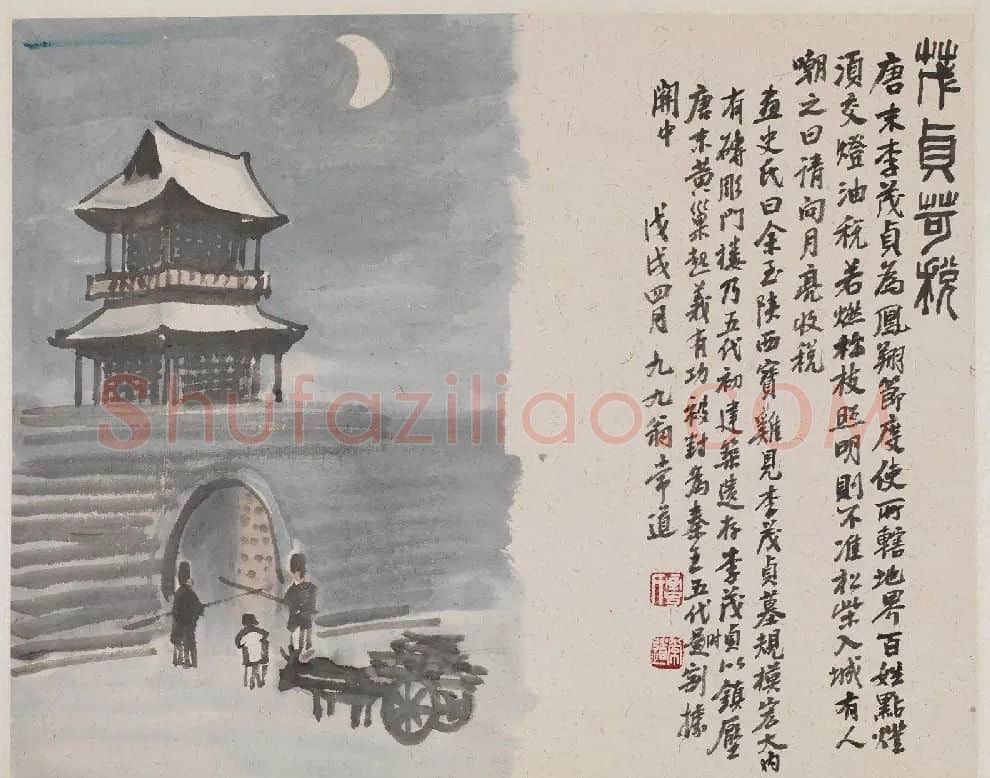 茂貞苛稅
唐末李茂貞為鳳翔節度使所轄地界百姓點燈
須交燈油稅若燃松枝照明則不准松柴入城有人
嘲之曰請向月亮收稅
畫史氏曰余至陝西寶雞見李茂貞墓規模宏大内
有磚彫門樓乃五代初建築遺存李茂貞以鎮壓
唐末黃巢起義有功被封為秦王五代時割據
關中 戊戌四月 九九翁常道
Shufaziliao.COM